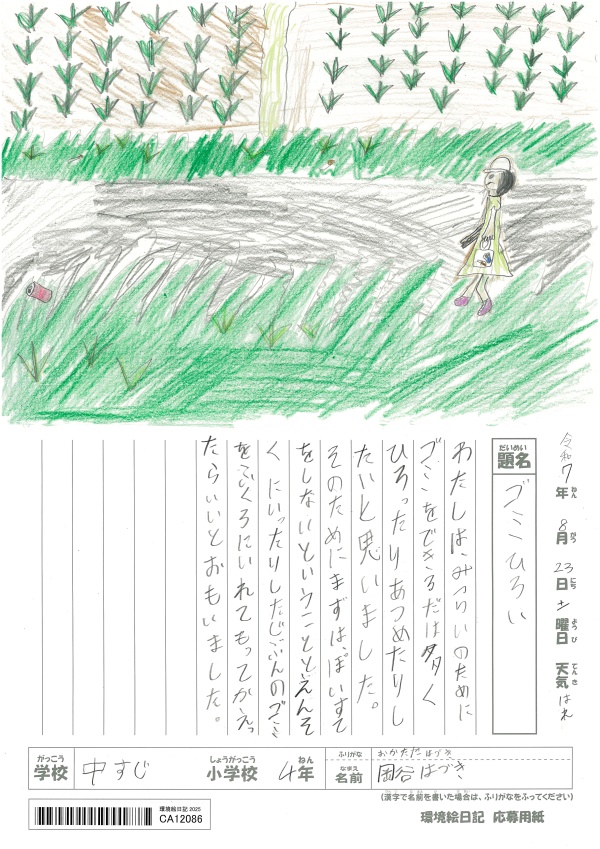 令和7年 8月 23日 土曜日 天気 はれ
ねん がつ にち ようび てんき
だいめい
題名
ゴミひろい
わたしは、みつらいのために
ゴミをできるだけ多く
ひろったりあつめたりし
たいと思いました。
そのためにまずは、ぽいすて
をしないということとえんそ
くにいったりしたじぶんのゴミ
をふくろにいれてもってかえっ
たらいいとおもいました。
がっこう
学校
中すじ
しょうがっこう
小学校
4年
ねん
ふりがな
おかただ はづき
なまえ
名前
岡谷 はづき
(漢字で名前を書いた場合は、ふりがなをふってください)
環境絵日記 2025
CA12086
環境絵日記 応募用紙